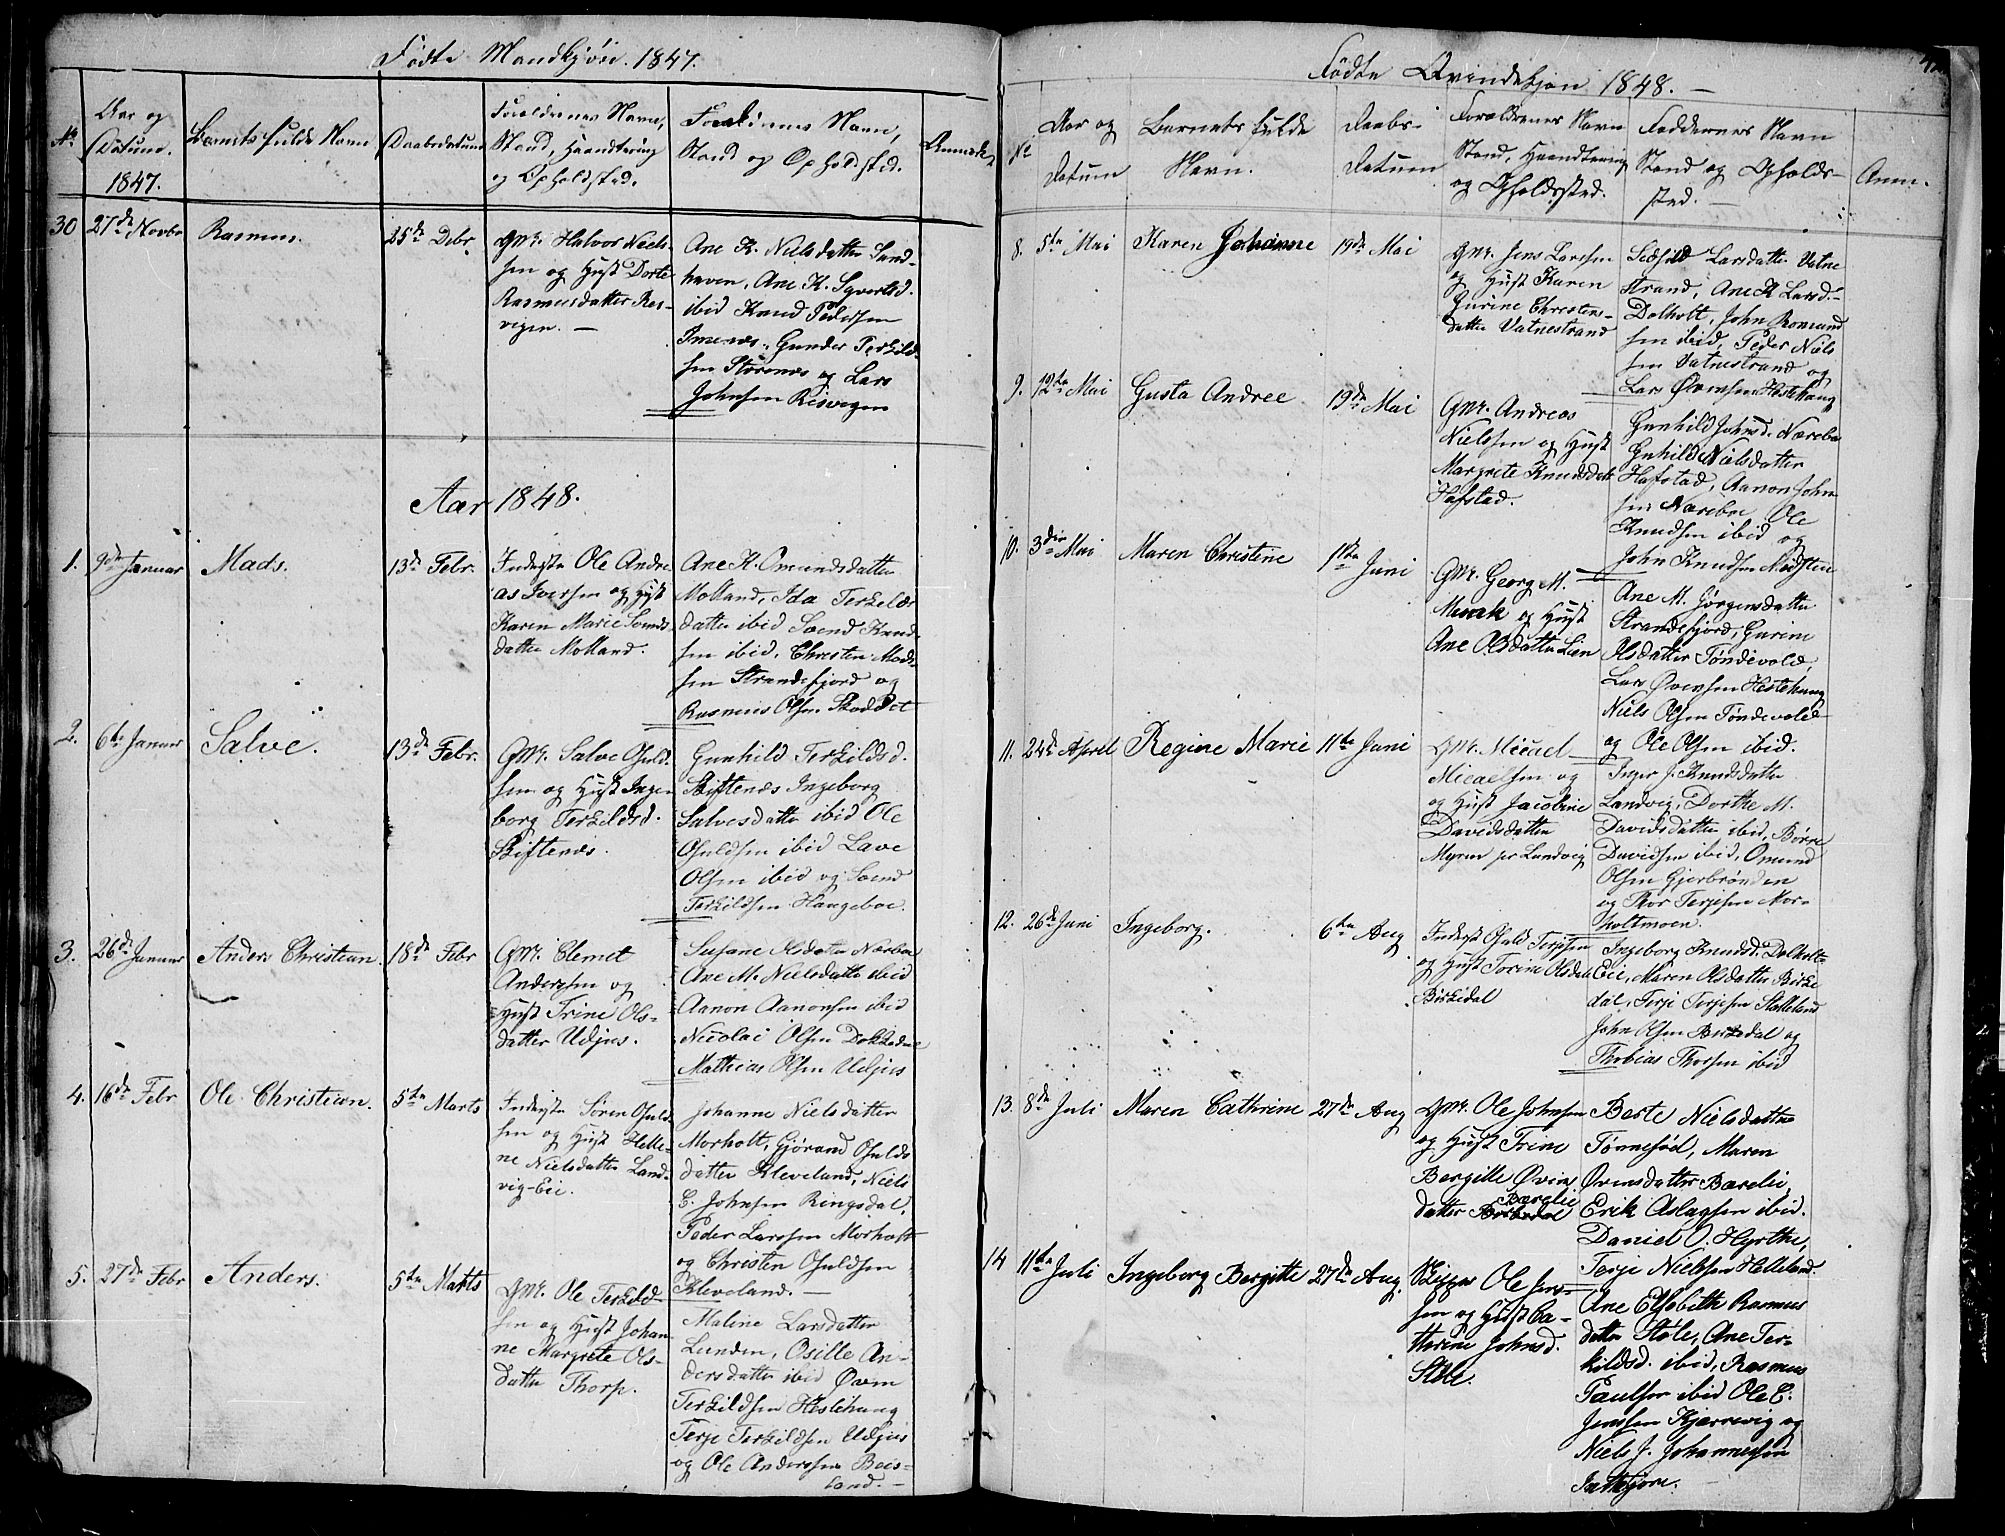 Fødte Mandkjøn. 1847.
No
Aar og
Datum.
1847.
Barnets fulde Navn
Daabsdatum
Forældrenes Navne,
Stand, Haandtering
og Opholdsted.
Faddernes Navne,
Stand og Opholdsted.
Anmærk.
30
27de Novbr
Rasmus.
25de Debr.
Gmd. Halvor Niels-
sen og Hust Dorte
Rasmusdatter Res-
vigen. —
Ane K. Nielsdatter Sand-
haven, Ane K. Syvertsd.
ibid Knud Pedersen
Imenæs, Gunder Terkild-
sen Storenæs og Lars
Johnsen Risvigen
Aar 1848.
1.
9de Januar
Mads.
13de Febr.
Inderste Ole Andre
as Iversen og Hust
Karen Marie
datter Molland.
Ane K. Omundsdatter
Molland, Ida Terkilds
datter ibid Svend Knud-
sen ibid. Christen Mads-
sen Strandefjord og
Rasmus Olsen Skaddet
2.
6te Januar
Salve.
13de Febr.
Gmd. Salve Osuld-
sen og Hust Inge-
borg Terkildsd.
Skiftenæs.
Gunhild Terkildsd.
Skiftenæs Ingeborg
Salvesdatter ibid Ole
Osuldsen ibid Lave
Olsen ibid og Svend
Terkildsen Haugeboe.
3.
26de Januar
Anders Christian.
18de Febr
Gmd. Clemet
Anderssen og
Hust Trine Ols-
datter Udjus.
Susane Olsdatter Nærboe
Ane M. Nielsdatter ibid
Aanon Aanonsen ibid
Nicolai Olsen Dokkedal
Mathias Olsen Udjus
4.
16de Febr
Ole Christian.
5te Marts
Inderste Søren Osuld-
sen og Hust Helle-
ne Nielsdatter Land-
vig-Eie.
Johanne Nielsdatter
Morholt, Gjørand Osulds
datter Kleveland, Niels
C. Johnsen Ringsdal,
Peder Larssen Morholt
og Christen Osuldsen
Kleveland. —
5.
27de Febr
Anders.
5te Marts
Gmd. Ole Terkild-
sen og Hust Johan-
ne Margrete Ols-
datter Thorp.
Maline Larsdatter
Lunden, Osille An-
dersdatter ibid Øven
Terkildsen Hestehaug
Terje Terkildsen Udjus
og Ole Anderssen Beis-
land. —
Fødte Qvindekjøn 1848. —
No
Aar og
Datum
Barnets fulde
Navn.
Daabs-
Datum
Forældrenes Navn
Stand, Haandtering
og Opholdssted.
Faddernes Navn
Stand og Opholds-
sted. —
Anm.
8.
5te Mai
Karen Johanne
19de Mai
Gmd. Jens Larssen
og Hust Karen
Gurine Christens-
datter Vatnestrand
Larsdatter Vatne
strand, Ane K Larsd.
Dolholt, John Romund
sen ibid, Peder Niels
sen Vatnestrand og
Lars Øvensen Hestehaug
9.
12te Mai
Gusta Andree
19de Mai
Gmd. Andreas
Nielssen og Hust
Margrete Knudsdatt
Hafstad.
Gunhild Johnsd. Næreboe
Gnhild Nielsdatter
Hafstad, Aanon John
sen Næreboe Ole
Knudsen ibid og
John Knudsen Modsten
10.
3die Mai
Maren Christine
1ste Juni
Gmd. Georg M.
Munk og Hust
Ane Olsdatter Lien
Ane M. Jørgensdatter
Strandefjord, Gurine
Olsdatter Tøndevold,
Lars Øvensen Hestehaug
Niels Olsen Tøndevold
og Ole Olsen ibid.
11.
24de April
Regine Marie
11te Juni
Gmd. Micael
Micaelsen og
og Hust Jacobine
Davidsdatter
Myren pr Landvig
Inger J. Knudsdatter
Landvig, Dorthe M.
Davidsdatter ibid, Børre
Davidsen ibid, Omund
Olsen Gjerbrønden
og Thor Terjesen Mor-
holtmoen.
12.
26de Juni
Ingeborg.
6te Aug
Inderst Osuld Terjesen
og Hust Torine Olsdat
Birkedal
Ingeborg Knudsd. Dolholt-
Eie, Maren Olsdatter Birke
dal, Terje Terjesen Stalleland
John Olsen Birkedal og
Thobias Thorsen ibid
13.
8de Juli
Maren Cathrine
27de Aug
Gmd. Ole Johnsen
og Hust Trine
Bergitte Øvens
datter Birkedal Barelie
Berte Nielsdatter
Tønnesøl, Maren
Øvensdatter Barelie,
Erik Aslagsen ibid.
Daniel O. Hyrthe,
Terje Nielssen Helleland.
14
11te Juli
Ingeborg Bergitte
27de Aug.
Skipper Ole Jens-
sen og Hust Ca-
therine Johnsd.
Støle.
Ane Elsebeth Rasmus
datter Støle, Ane Ter-
kildsd. ibid, Rasmus
Paulsen ibid Ole C.
Jenssen Kjerrevig og
Niels J. Johannessen